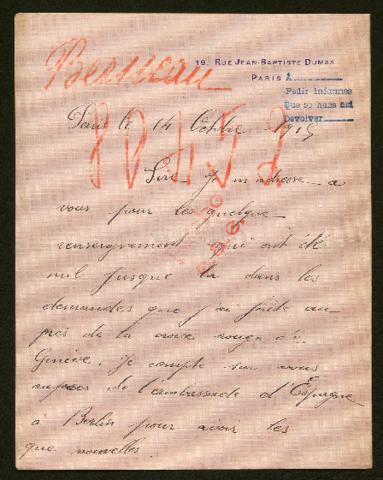 Berneau
19, RUE JEAN-BAPTISTE DUMAS
PARIS
A
Pedir informes
Que se hace así
Devolver
Paris le 14 Octobre 1915
Sire je m'adresse a
vous pour les quelque
renseignement qui ont été
nul jusque la dans les
demandes que j'ai faite au
près de la croix rouge de
Genève. Je compte sur vous
de l'embassade d'Espagne
a Berlin pour avoir les
que nouvelles.